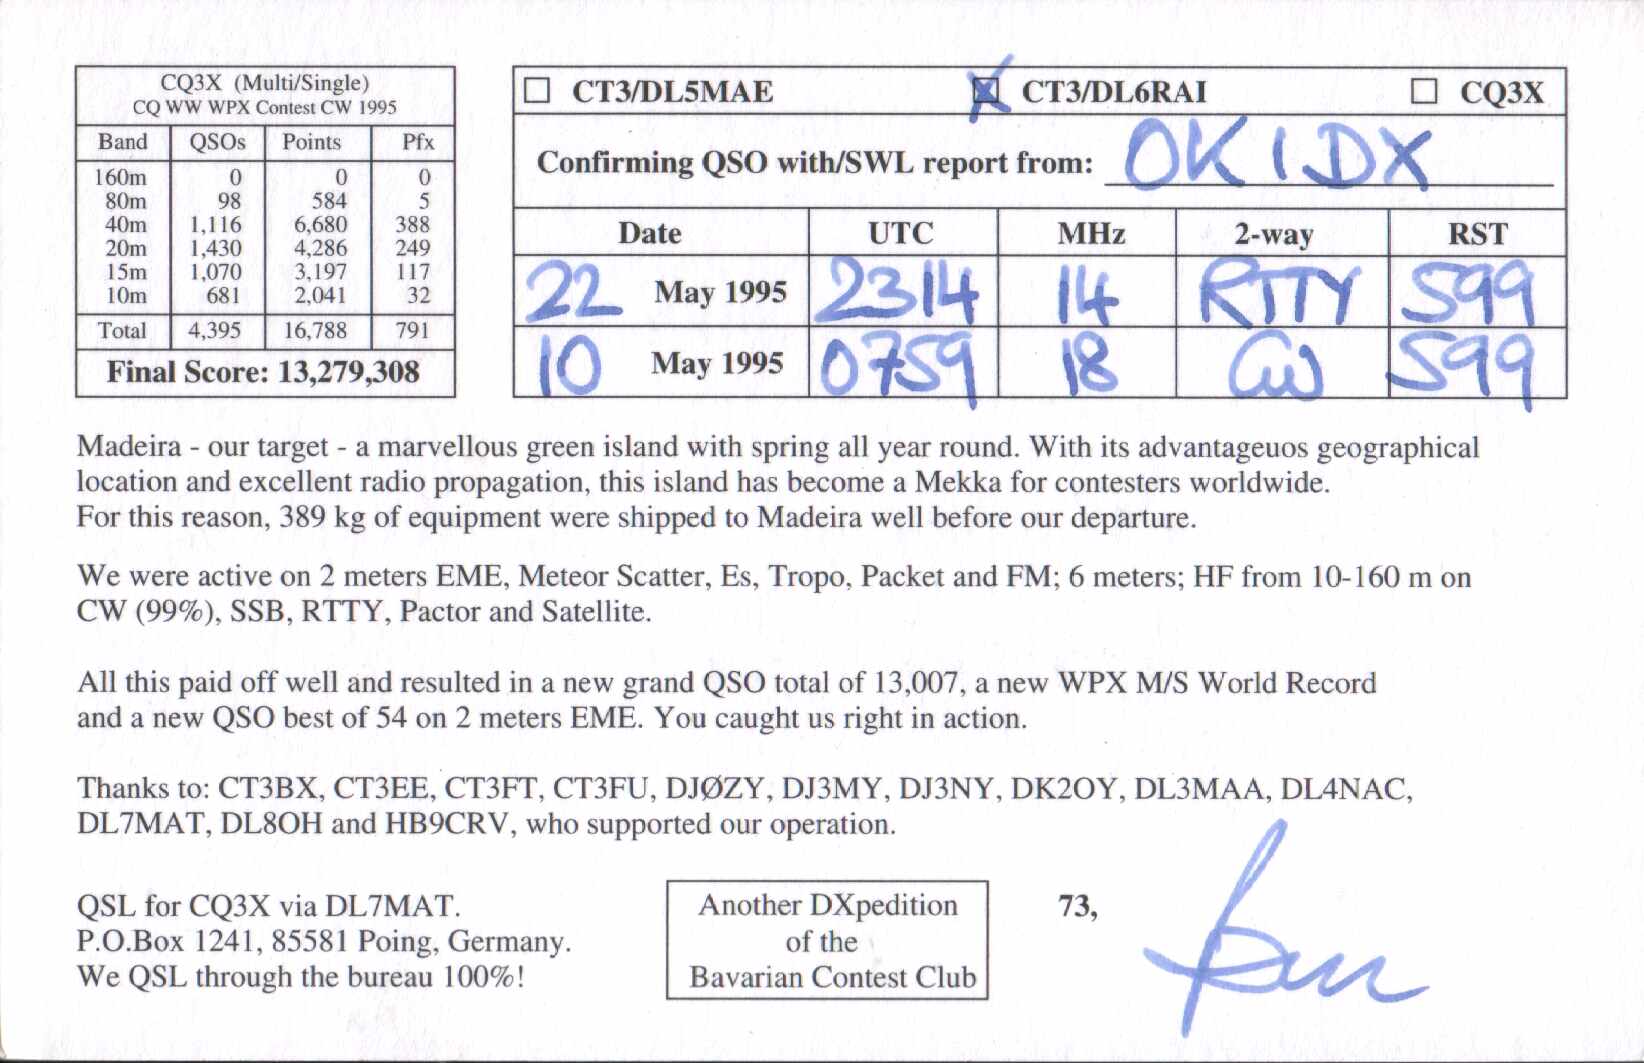 CQ3X (Multi/Single)
CQ WW WPX Contest CW 1995
Band QSOs Points Pfx
160m 0 0 0
80m 98 584 5
40m 1,116 6,680 388
20m 1,430 4,286 249
15m 1,070 3,197 117
10m 681 2,041 32
Total 4,395 16,788 791
Final Score: 13,279,308
CT3/DL5MAE CT3/DL6RAI CQ3X
Confirming QSO with/SWL report from: OK1DX
Date UTC MHz 2-way RST
22 May 1995 2314 14 RTTY 599
10 May 1995 0759 18 CW 599
Madeira - our target - a marvellous green island with spring all year round. With its advantageuos geographical
location and excellent radio propagation, this island has become a Mekka for contesters worldwide.
For this reason, 389 kg of equipment were shipped to Madeira well before our departure.
We were active on 2 meters EME, Meteor Scatter, Es, Tropo, Packet and FM; 6 meters; HF from 10-160 m on
CW (99%), SSB, RTTY, Pactor and Satellite.
All this paid off well and resulted in a new grand QSO total of 13,007, a new WPX M/S World Record
and a new QSO best of 54 on 2 meters EME. You caught us right in action.
Thanks to: CT3BX, CT3EE, CT3FT, CT3FU, DJØZY, DJ3MY, DJ3NY, DK2OY, DL3MAA, DL4NAC,
DL7MAT, DL8OH and HB9CRV, who supported our operation.
QSL for CQ3X via DL7MAT.
P.O.Box 1241, 85581 Poing, Germany.
We QSL through the bureau 100%!
Another DXpedition
of the
Bavarian Contest Club
73,